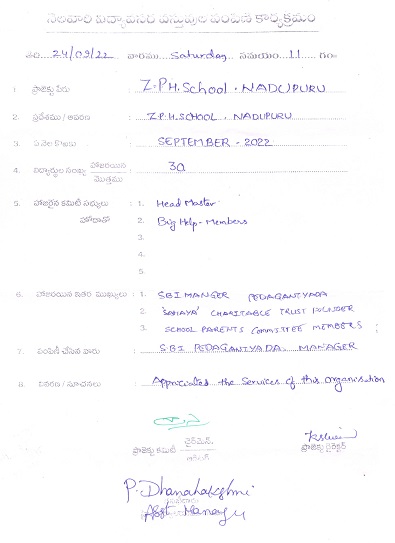 నెలవారి విద్యావసర వస్తువుల పంపిణి కార్యక్రమం
తేది 24/09/22 వారము Saturday సమయం 11 గం
1. ప్రాజెక్టు పేరు : Z.P.H.School, NADUPURU
2. ప్రదేశము / ఆవరణ : Z.P.H.SCHOOL, NADUPURU
3. ఏ నెల కొరకు : SEPTEMBER - 2022
4. విద్యార్థుల సంఖ్య హాజరయిన / మొత్తము : 30
5. హాజరైన కమిటీ సభ్యులు : 1. Head Master
హోదాతో 2. Big Help - Members
3.
4.
5.
6. హాజరయిన ఇతర ముఖ్యులు : 1. SBI MANGER PEDAGANTYADA
2. 'SAHAYA' CHARITABLE TRUST FOUNDER
3. SCHOOL PARENTS COMMITTEE MEMBERS
7. పంపిణీ చేసిన వారు : SBI PEDAGANTYADA MANAGER
8. వివరణ / సూచనలు : Appreciated the Services of this organisation
ప్రాజెక్టు కమిటీ చైర్మెన్
ప్రాజెక్టు డైరెక్టర్
P. Dhanalakshmi
Asst. Manager